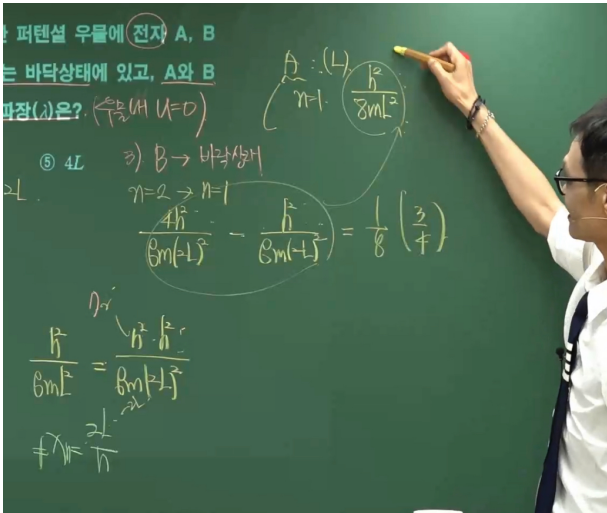 퍼텐셜 우물에 전자 A, B
는 바닥상태에 있고, A와 B
파장(λ)은? (우물내 U=0)
⑤ 4L
2L
A : (L)
n=1 h²/8mL²
3) B → 바닥상태
n=2 → n=1
4h²/8m(2L)² - h²/8m(2L)² = 1/8 (3/4)
h²/8mL² = n²·h²/8m(2L)²
λn = 2L/n